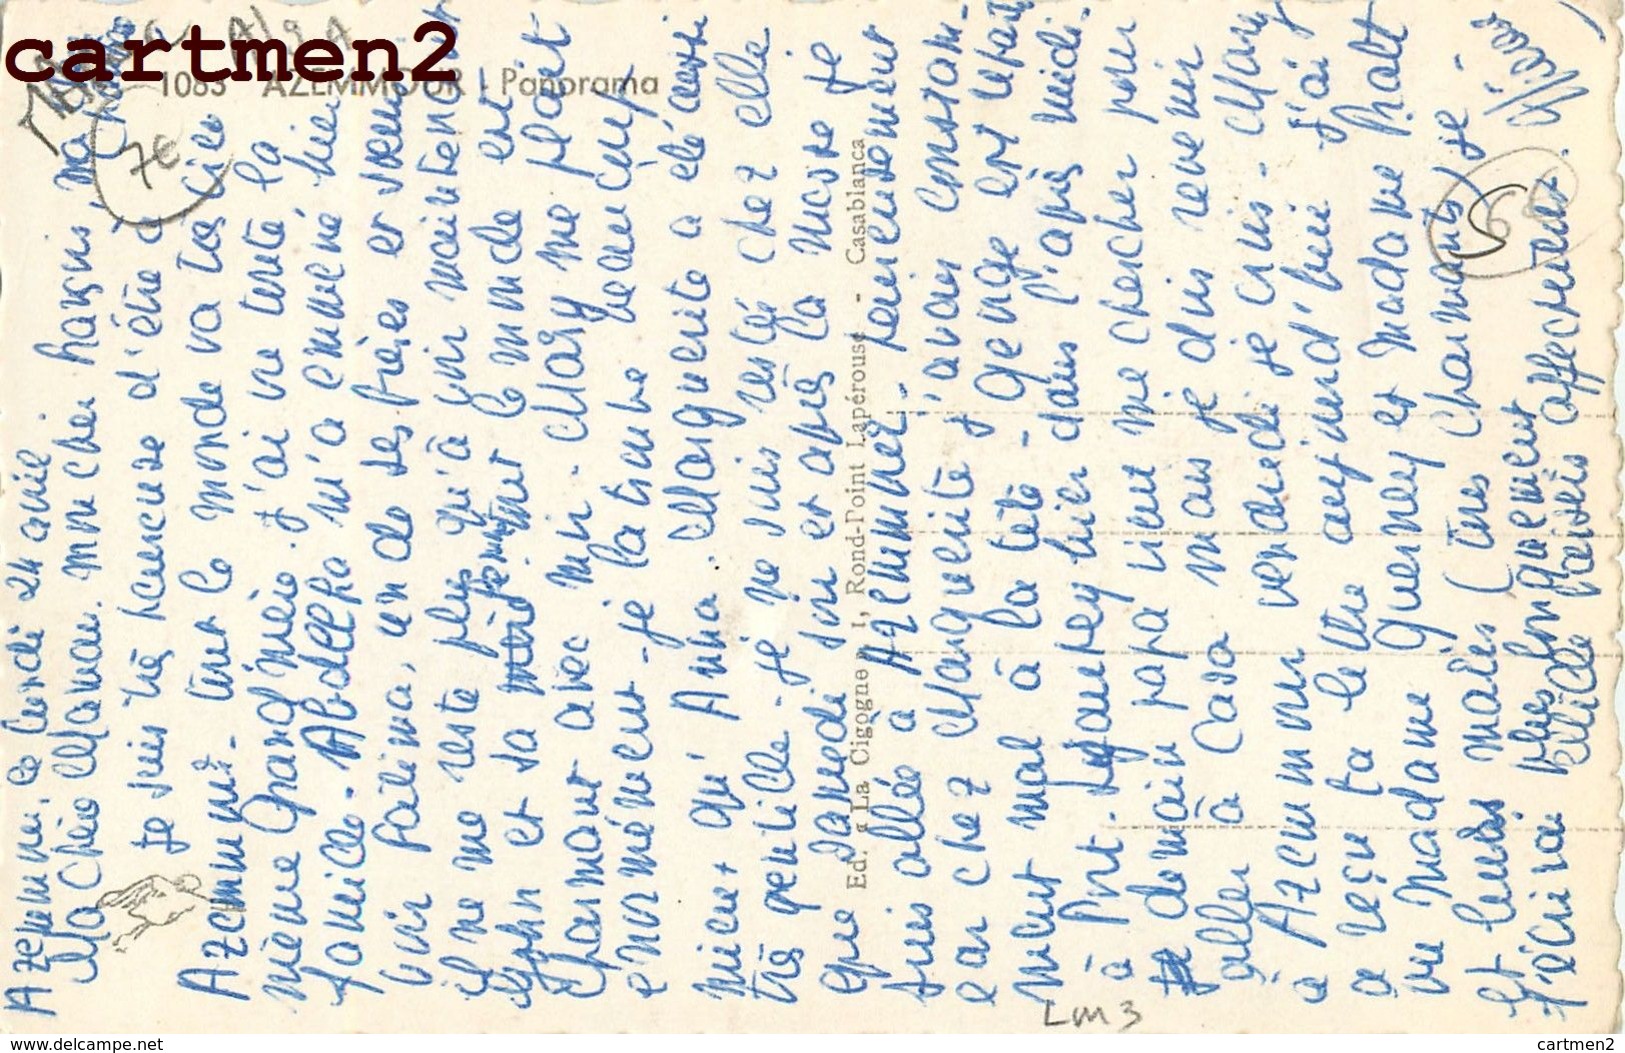 cartmen2
1083 AZEMMOUR - Panorama
7€
Azemmour, le lundi 24 avril
Ma chère Maman, mon cher
Je suis très heureuse d'être à
Azemmour. tout le monde va très bien
même Grand'mère. J'ai vu toute la
famille. Abdella m'a emmené hier
voir Fatima, un de ses frères et soeurs
il ne me reste plus qu'à voir maintenant
et sa femme tout le monde est
charmant avec moi. Mary me plait
énormément - je la trouve beaucoup
mieux qu'Anna. Marguerite a été aussi
très gentille. je ne suis restée chez elle
que samedi soir et après la messe je
suis allée à Azemmour. heureusement
car chez Marguerite j'avais constam-
ment mal à la tête - George est reparti
à Port-Lyautey hier dans l'après midi.
demain papa vient me chercher pour
aller à Casa mais je dois revenir
à Azemmour vendredi je crois - Mary
a reçu ta lettre aujourd'hui J'ai
vu Madame Guerney et Madame Pratt
et leurs maris (très charmants) je -
t'écrirai plus longuement
baisers affectueux.
Ed. "La Cigogne" 1, Rond-Point Lapérouse - Casablanca
LM3
www.delcampe.net
cartmen2